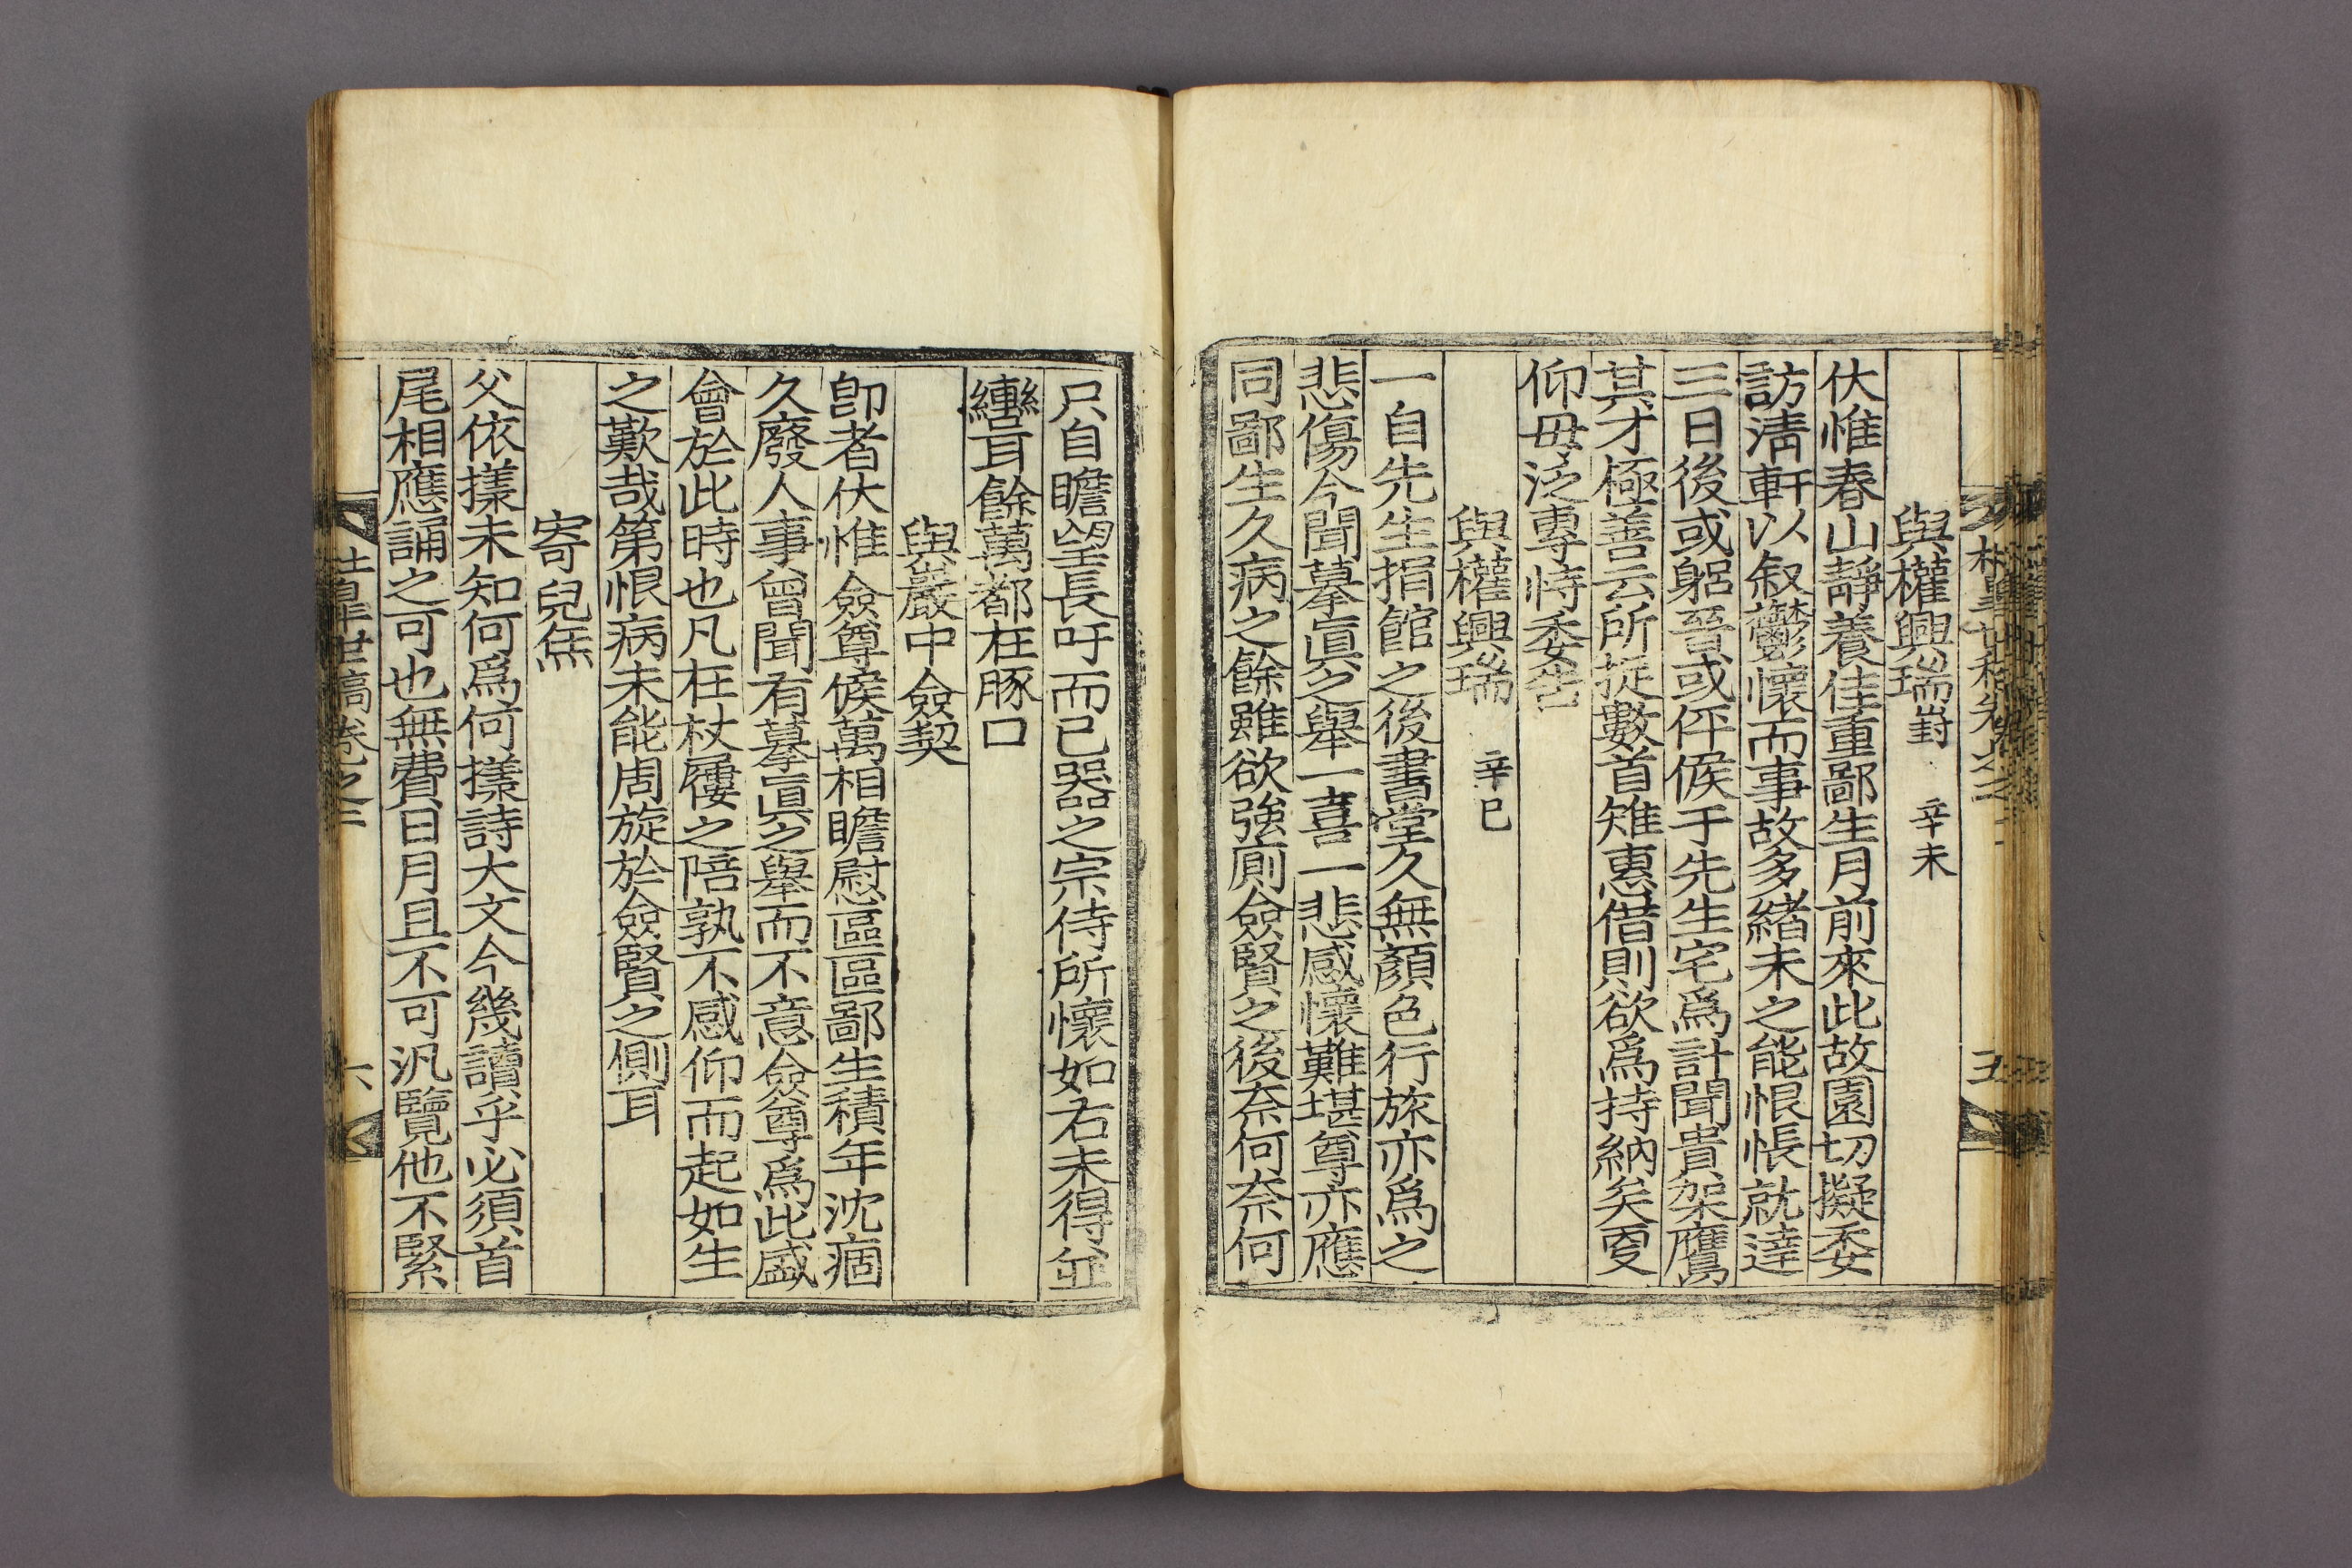 與權興瑞 辛未
伏惟春山靜養佳重鄙生月前來此故園切擬委
訪淸軒以敍鬱懷而事故多緖未之能恨悵就達
三日後或躬晉或伻候于先生宅爲計聞貴架鷹
其才極善云所捉數首雉惠借則欲爲持納矣更
仰毋泛專恃委告
與權興瑞 辛巳
一自先生捐館之後書堂久無顔色行旅亦爲之
悲傷今聞摹眞之擧一喜一悲感懷難堪尊亦應
同鄙生久病之餘雖欲強廁僉賢之後奈何奈何
只自瞻望長吁而已器之宗侍所懷如右未得並
纏耳餘萬都在豚口
與巖中僉契
卽者伏惟僉尊候萬相瞻慰區區鄙生積年沈痼
久廢人事曾聞有摹眞之擧而不意僉尊爲此盛
會於此時也凡在杖屨之陪孰不感仰而起如生
之歎哉第恨病未能周旋於僉賢之側耳
寄兒
父依㨾未知何爲何㨾詩大文今幾讀乎必須首
尾相應誦之可也無費日月且不可汎覽他不緊
世稿卷之三
六